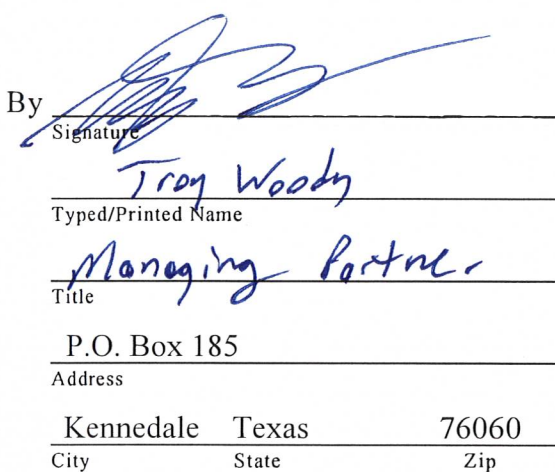 By
Signature
Troy Woody
Typed/Printed Name
Managing Partner
Title
P.O. Box 185
Address
Kennedale Texas 76060
City State Zip